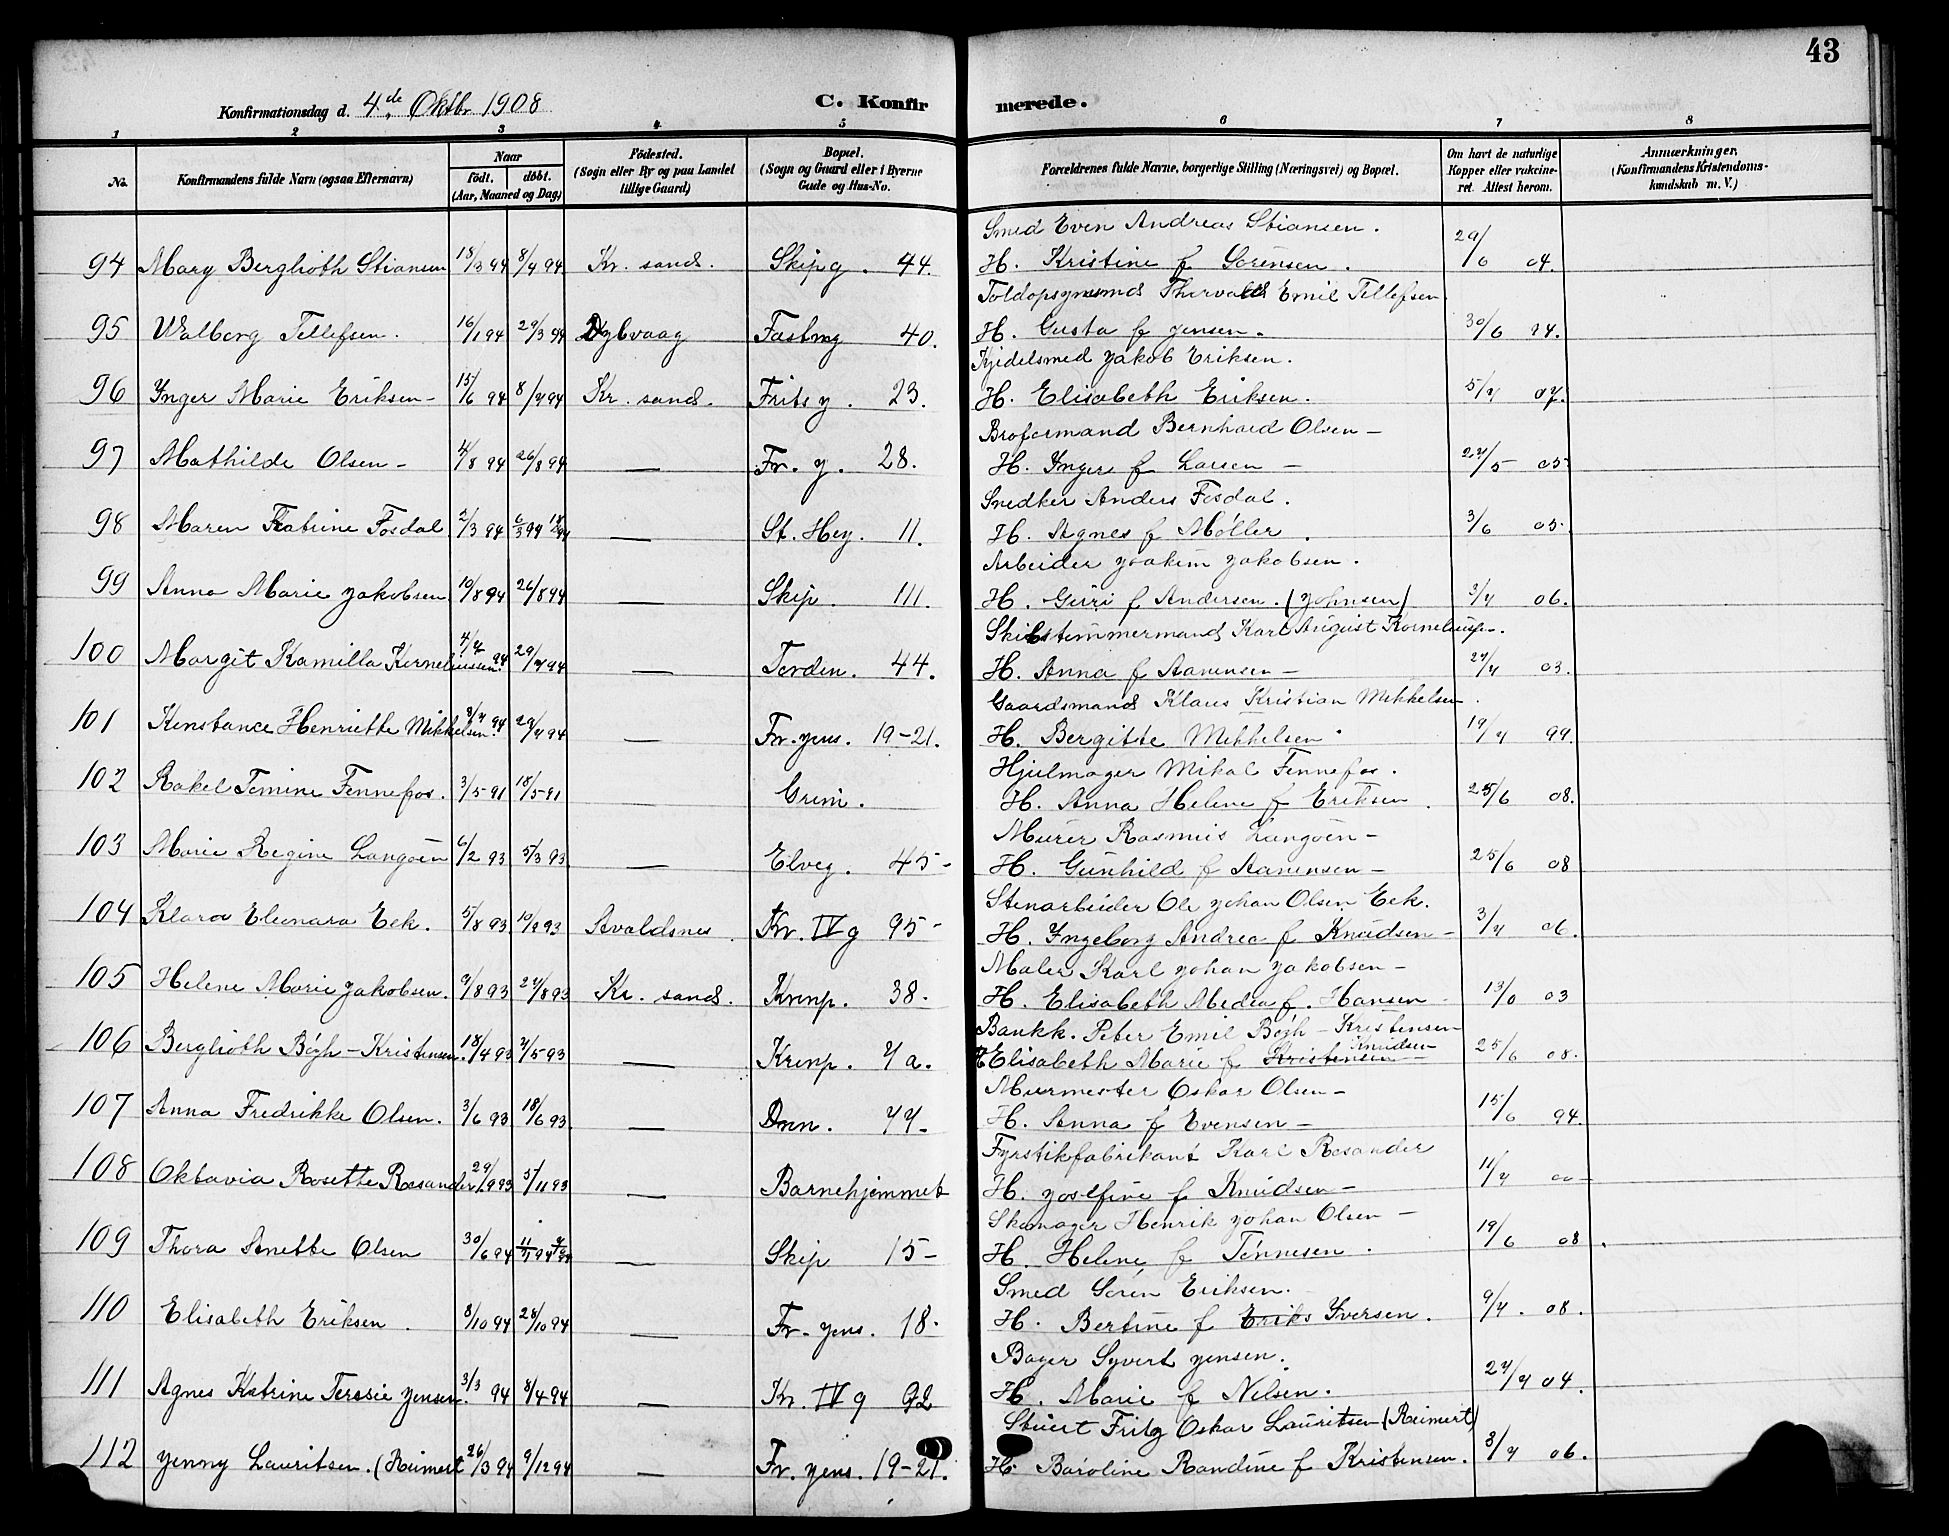 43
Konfirmationsdag d. 4de Oktbr 1908
C. Konfirmerede.
1 2 3 4 5 6 7 8
No.
Konfirmandens fulde Navn (ogsaa Efternavn)
Naar
født. døbt.
(Aar, Maaned og Dag)
Fødested.
(Sogn eller By og paa Landet
tillige Gaard)
Bopæl.
(Sogn og Gaard eller i Byerne
Gade og Hus-No.
Forældrenes fulde Navne, borgerlige Stilling (Næringsvei) og Bopæl.
Om havt de naturlige
Kopper eller vakcine-
ret. Attest herom.
Anmærkninger.
(Konfirmandens Kristendoms-
kundskab m. V.)
Smed Even Andreas Stiansen.
94 Mary Berglioth Stiansen 18/3 94 8/4 94 Kr. sand. Skipg. 44. H. Kristine f Sørensen. 29/6 04.
Toldopsynsmd Thorvald Emil Tellefsen
95 Valborg Tellefsen. 16/1 94 29/3 94 Dybvaag Fæstng 40. H. Gusta f Jensen. 30/6 94.
Kjedelsmed Jakob Eriksen.
96 Inger Marie Eriksen- 15/6 94 8/7 94 Kr. sand. Frits y. 23. H. Elisabeth Eriksen. 5/7 07.
Broformand Bernhard Olsen-
97 Mathilde Olsen- 4/8 94 26/8 94 — Fr. y. 28. H. Inger f Larsen - 27/5 05
Snedker Anders Fosdal.
98 Maren Katrine Fosdal 2/3 94 6/3 94 — St. Hey. 11. H. Agnes f Møller. 3/6 05.
Arbeider Joakim Jakobsen.
99 Anna Marie Jakobsen 10/8 94 26/8 94 — Skip. 111. H. Guri f Andersen. (Johnsen) 3/7 06.
Skibstømmermand Karl August Korneliusen.
100 Margit Kamilla Korneliussen 4/7 94 29/7 94 — Torden. 44. H. Anna f Aanensen- 27/7 03.
Gaardsmand Klaus Kristian Mikkelsen.
101 Konstance Henriette Mikkelsen. 3/7 94 29/7 94 — Fr. Jens. 19-21. H. Bergitte Mikkelsen. 19/7 99.
Hjulmager Mikal Fennefos.
102 Rakel Tomine Fennefos. 3/5 91 18/5 91 — Grim. H. Anna Helene f Eriksen. 25/6 08.
Murer Rasmus Langøen-
103 Marie Regine Langøen 6/2 93 5/3 93 — Elveg. 45- H. Gunhild f Aanensen- 25/6 08
Stenarbeider Ole Johan Olsen Eek.
104 Klara Eleonara Eek. 5/8 93 10/9 93 Avaldsnes. Kr. IV g 95- H. Ingeborg Andrea f Knudsen- 3/7 06.
Maler Karl Johan Jakobsen-
105 Helene Marie Jakobsen. 9/8 93 27/8 93 Kr. sand. Kronp. 38. H. Elisabeth Medea f. Hansen 13/6 03
Bankk. Peter Emil Bøgh-Kristensen
106 Berglioth Bøgh-Kristensen. 18/4 93 7/5 93 — Kronp. 7 a. H Elisabeth Marie f Kristensen Knudsen 25/6 08.
Murmester Oskar Olsen-
107 Anna Fredrikke Olsen. 3/6 93 18/6 93 — Dnn. 77- H. Anna f Evensen- 15/6 94.
Fyrstikfabrikant Karl Rosander
108 Oktavia Rosette Rosander 29/9 93 5/11 93 — Barnehjemmet H. Josefine f Knudsen- 11/7 00-
Skomager Henrik Johan Olsen-
109 Thora Anette Olsen 30/6 94 11/7 94 — Skip 15- H. Helene f Tønnesen. 19/6 08.
Smed Søren Eriksen.
110 Elisabeth Eriksen. 8/10 94 28/10 94 — Fr. Jens. 18. H. Bertine f Eriks Iversen. 9/7. 08.
Bager Syvert Jensen.
111 Agnes Katrine Teresie Jensen. 3/3 94 8/4 94 — Kr. IV g 92 H. Marie f Nilsen. 27/7 04.
Stuert Fritz Oskar Lauritsen (Reimert)
112 Jenny Lauritsen. (Reimert 26/3 94 9/12 94 — Fr. Jens. 19-21. H. Baroline Randine f Kristensen. 3/7 06.